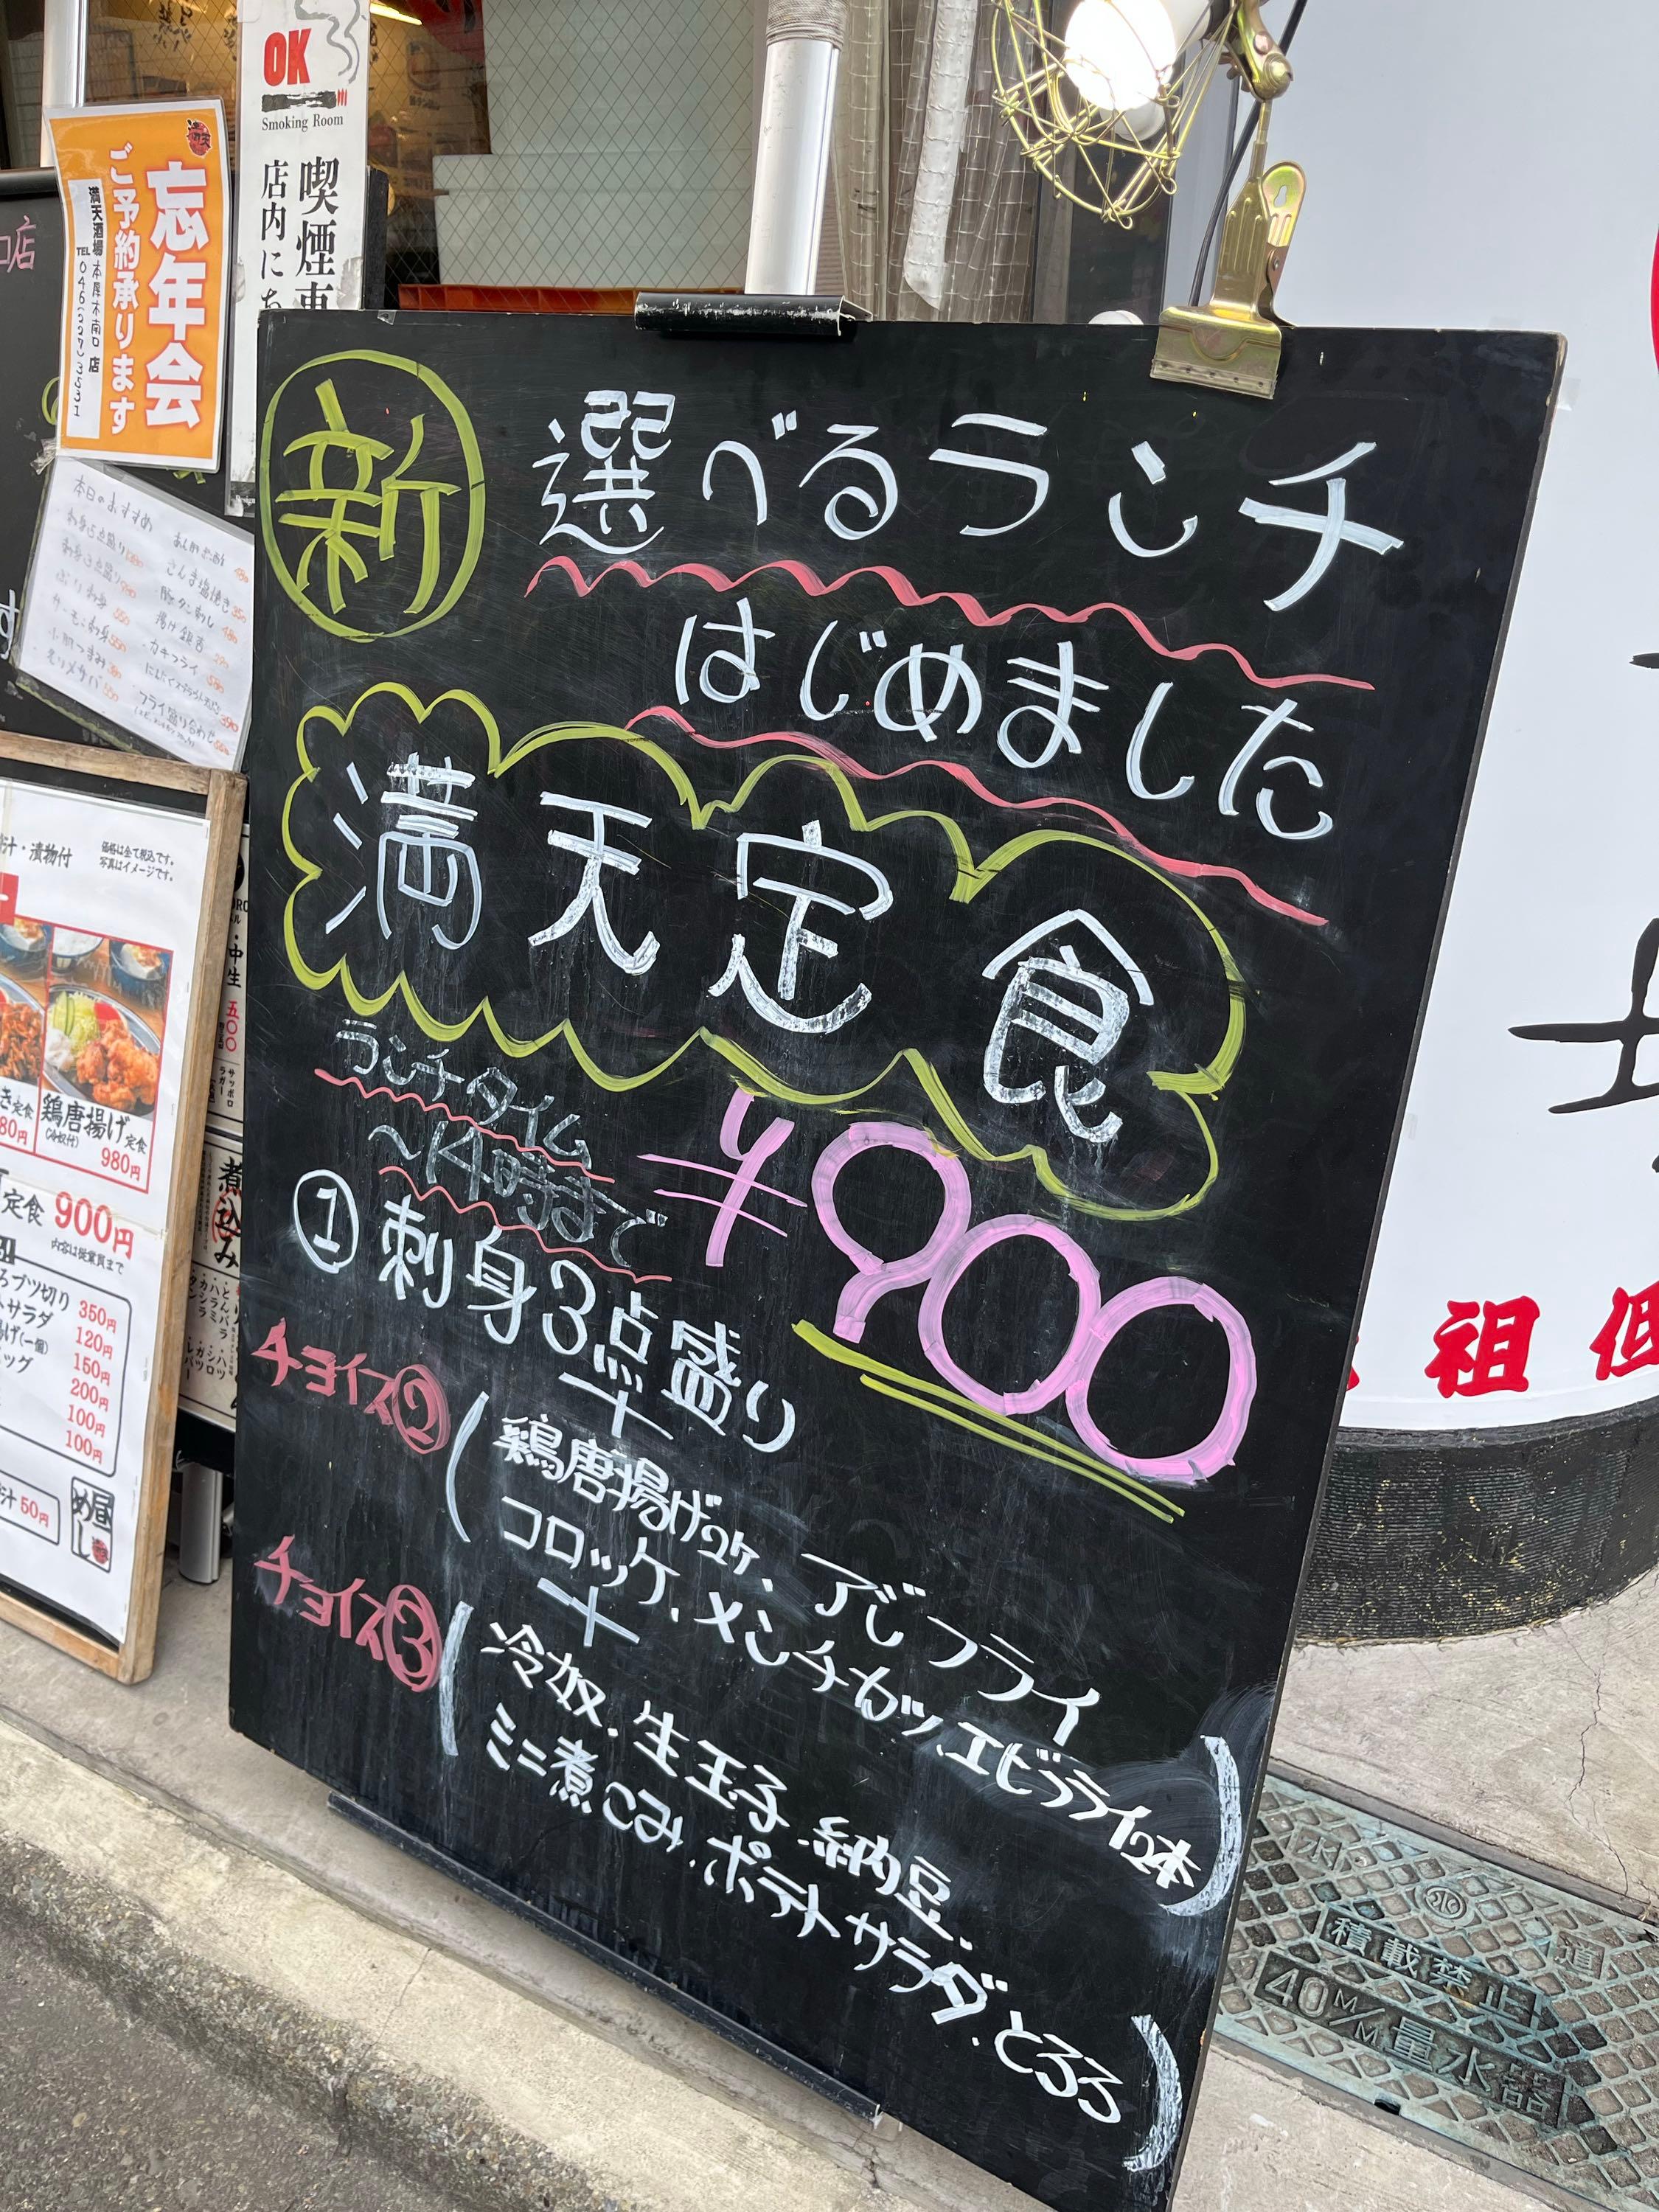 新
選べるランチ
はじめました
満天定食
ランチタイム
～14時まで
¥900
①刺身3点盛り
+
チョイス②
鶏唐揚げ2ケ、アジフライ
コロッケ、メンチカツ、エビフライ2本
+
チョイス③
冷奴、生玉子、納豆、
ミニ煮こみ、ポテトサラダ、とろろ
忘年会
ご予約承ります
満天酒場 本厚木南口店
TEL 046(227)3531
OK
Smoking Room
喫煙専
店内に
本日のおすすめ
さんま塩焼き
カキフライ
漬物付
価格は全て税込です。
写真はイメージです。
鶏唐揚げ定食
980円
定食 900円
内容は従業員まで
ブツ切り 350円
サラダ 120円
150円
200円
100円
100円
汁 50円
昼めし
中生
五〇〇
サッポロ
ラガー
煮込み
とんバラ
ハラミ
カシラ
ハツ
シロ
ガツ
レバー
祖
水
道
積載禁止
40M/M量水器